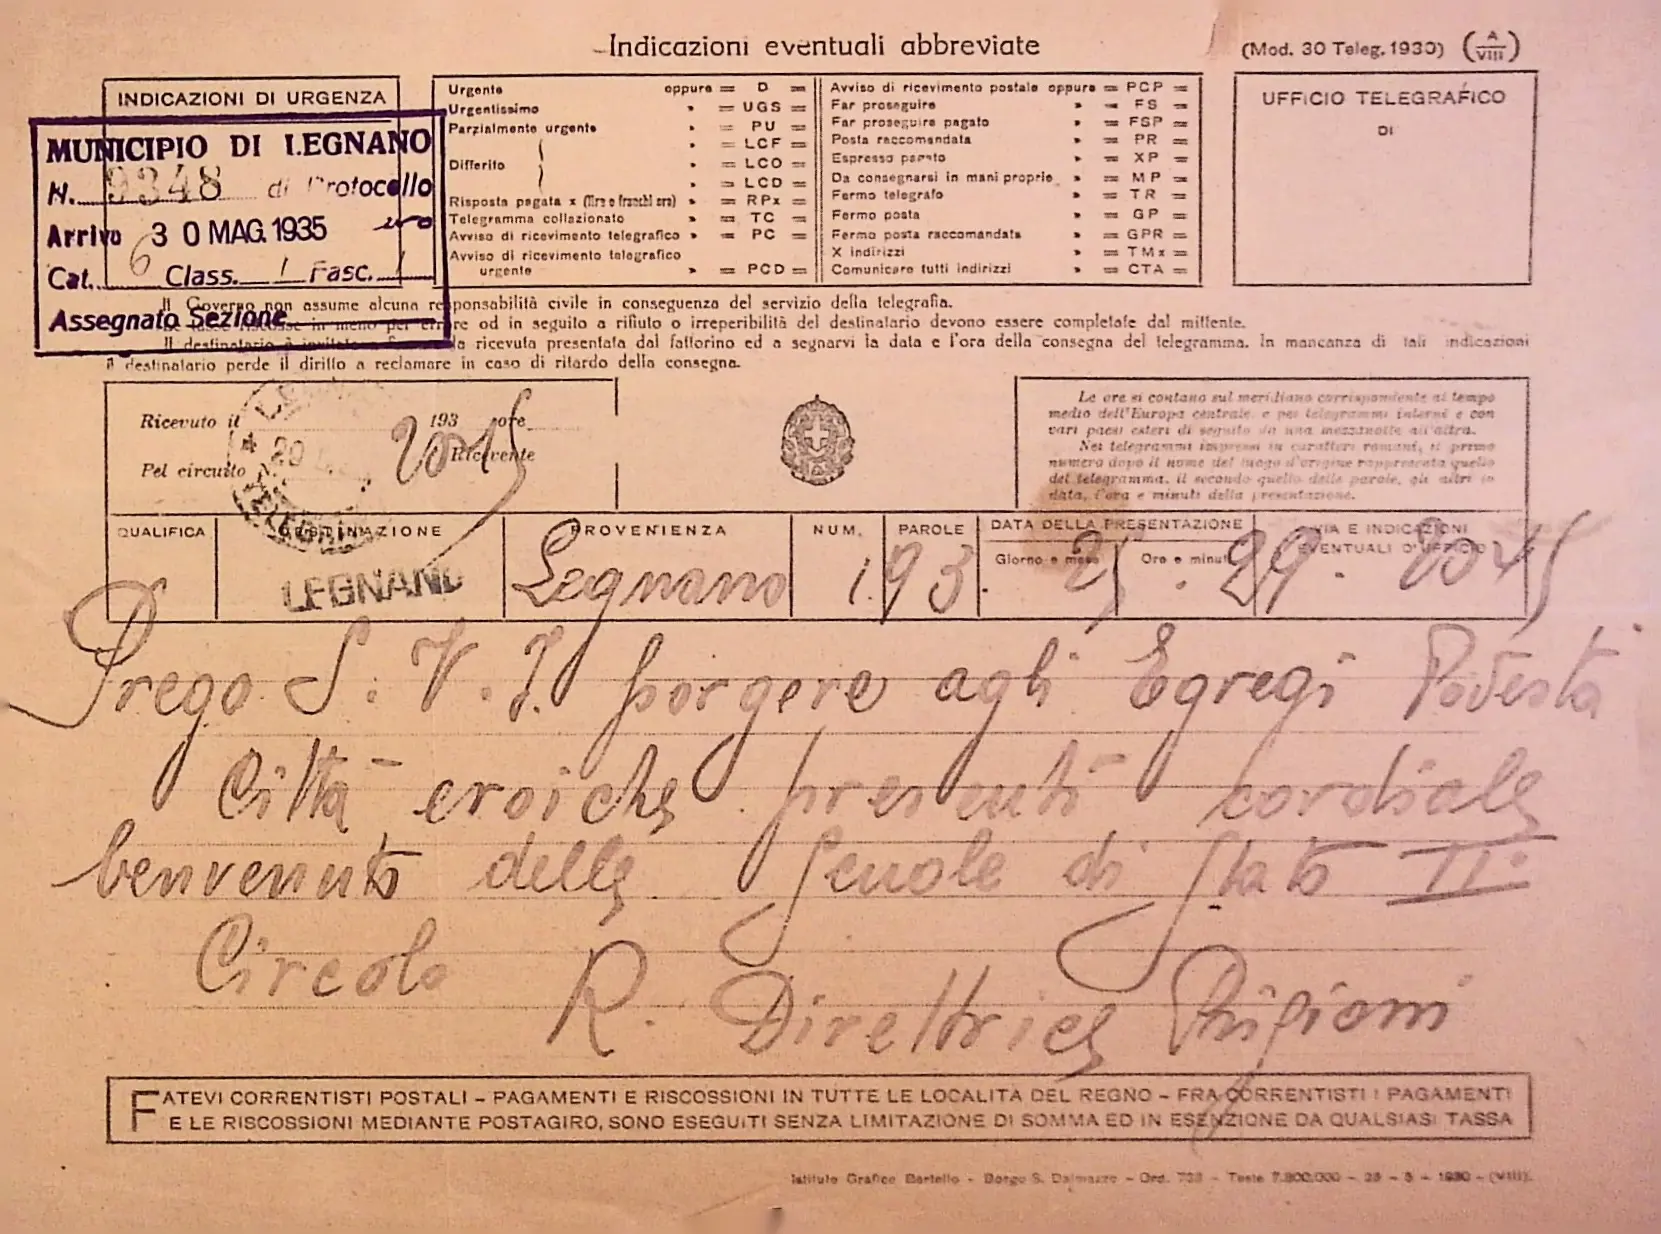 Indicazioni eventuali abbreviate
(Mod. 30 Teleg. 1930) (A/VIII)
INDICAZIONI DI URGENZA
MUNICIPIO DI LEGNANO
N. 9348 di Protocollo
Arrivo 30 MAG. 1935
Cat. 6 Class. 1 Fasc. 1
Assegnato Sezione
Urgente oppure = D =
Urgentissimo » = UGS =
Parzialmente urgente » = PU =
» = LCF =
Differito » = LCO =
» = LCD =
Risposta pagata x (lire o franchi oro) » = RPx =
Telegramma collazionato » = TC =
Avviso di ricevimento telegrafico » = PC =
Avviso di ricevimento telegrafico
urgente » = PCD =
Avviso di ricevimento postale oppure = PCP =
Far proseguire » = FS =
Far proseguire pagato » = FSP =
Posta raccomandata » = PR =
Espresso pagato » = XP =
Da consegnarsi in mani proprie » = MP =
Fermo telegrafo » = TR =
Fermo posta » = GP =
Fermo posta raccomandata » = GPR =
X indirizzi » = TMx =
Comunicare tutti indirizzi » = CTA =
UFFICIO TELEGRAFICO
DI
Il Governo non assume alcuna responsabilità civile in conseguenza del servizio della telegrafia.
riscosse in meno per errore od in seguito a rifiuto o irreperibilità del destinatario devono essere completate dal mittente.
Il destinatario è invitato a la ricevuta presentata dal fattorino ed a segnarvi la data e l'ora della consegna del telegramma. In mancanza di tali indicazioni
il destinatario perde il diritto a reclamare in caso di ritardo della consegna.
Ricevuto il 193 ore
2015
Pel circuito N. Ricevente
Le ore si contano sul meridiano corrispondente al tempo
medio dell'Europa centrale, e pei telegrammi interni e con
vari paesi esteri di seguito da una mezzanotte all'altra.
Nei telegrammi impressi in caratteri romani, il primo
numero dopo il nome del luogo d'origine rappresenta quello
del telegramma, il secondo quello delle parole, gli altri la
data, l'ora e minuti della presentazione.
QUALIFICA DESTINAZIONE PROVENIENZA NUM. PAROLE DATA DELLA PRESENTAZIONE VIA E INDICAZIONI
Giorno e mese Ore e minuti EVENTUALI D'UFFICIO
LEGNANO Legnano 193. 25. 29. 2045
Prego S. V. I. porgere agli Egregi Podestà
Città eroiche presenti cordiale
benvenuto delle Scuole di Stato II°
Circolo
R. Direttrice
FATEVI CORRENTISTI POSTALI - PAGAMENTI E RISCOSSIONI IN TUTTE LE LOCALITA DEL REGNO - FRA CORRENTISTI I PAGAMENTI
E LE RISCOSSIONI MEDIANTE POSTAGIRO, SONO ESEGUITI SENZA LIMITAZIONE DI SOMMA ED IN ESENZIONE DA QUALSIASI TASSA
Istituto Grafico Bertello - Borgo S. Dalmazzo - Ord. 738 - Teste 7.800.000 - - 1930 - (VIII).